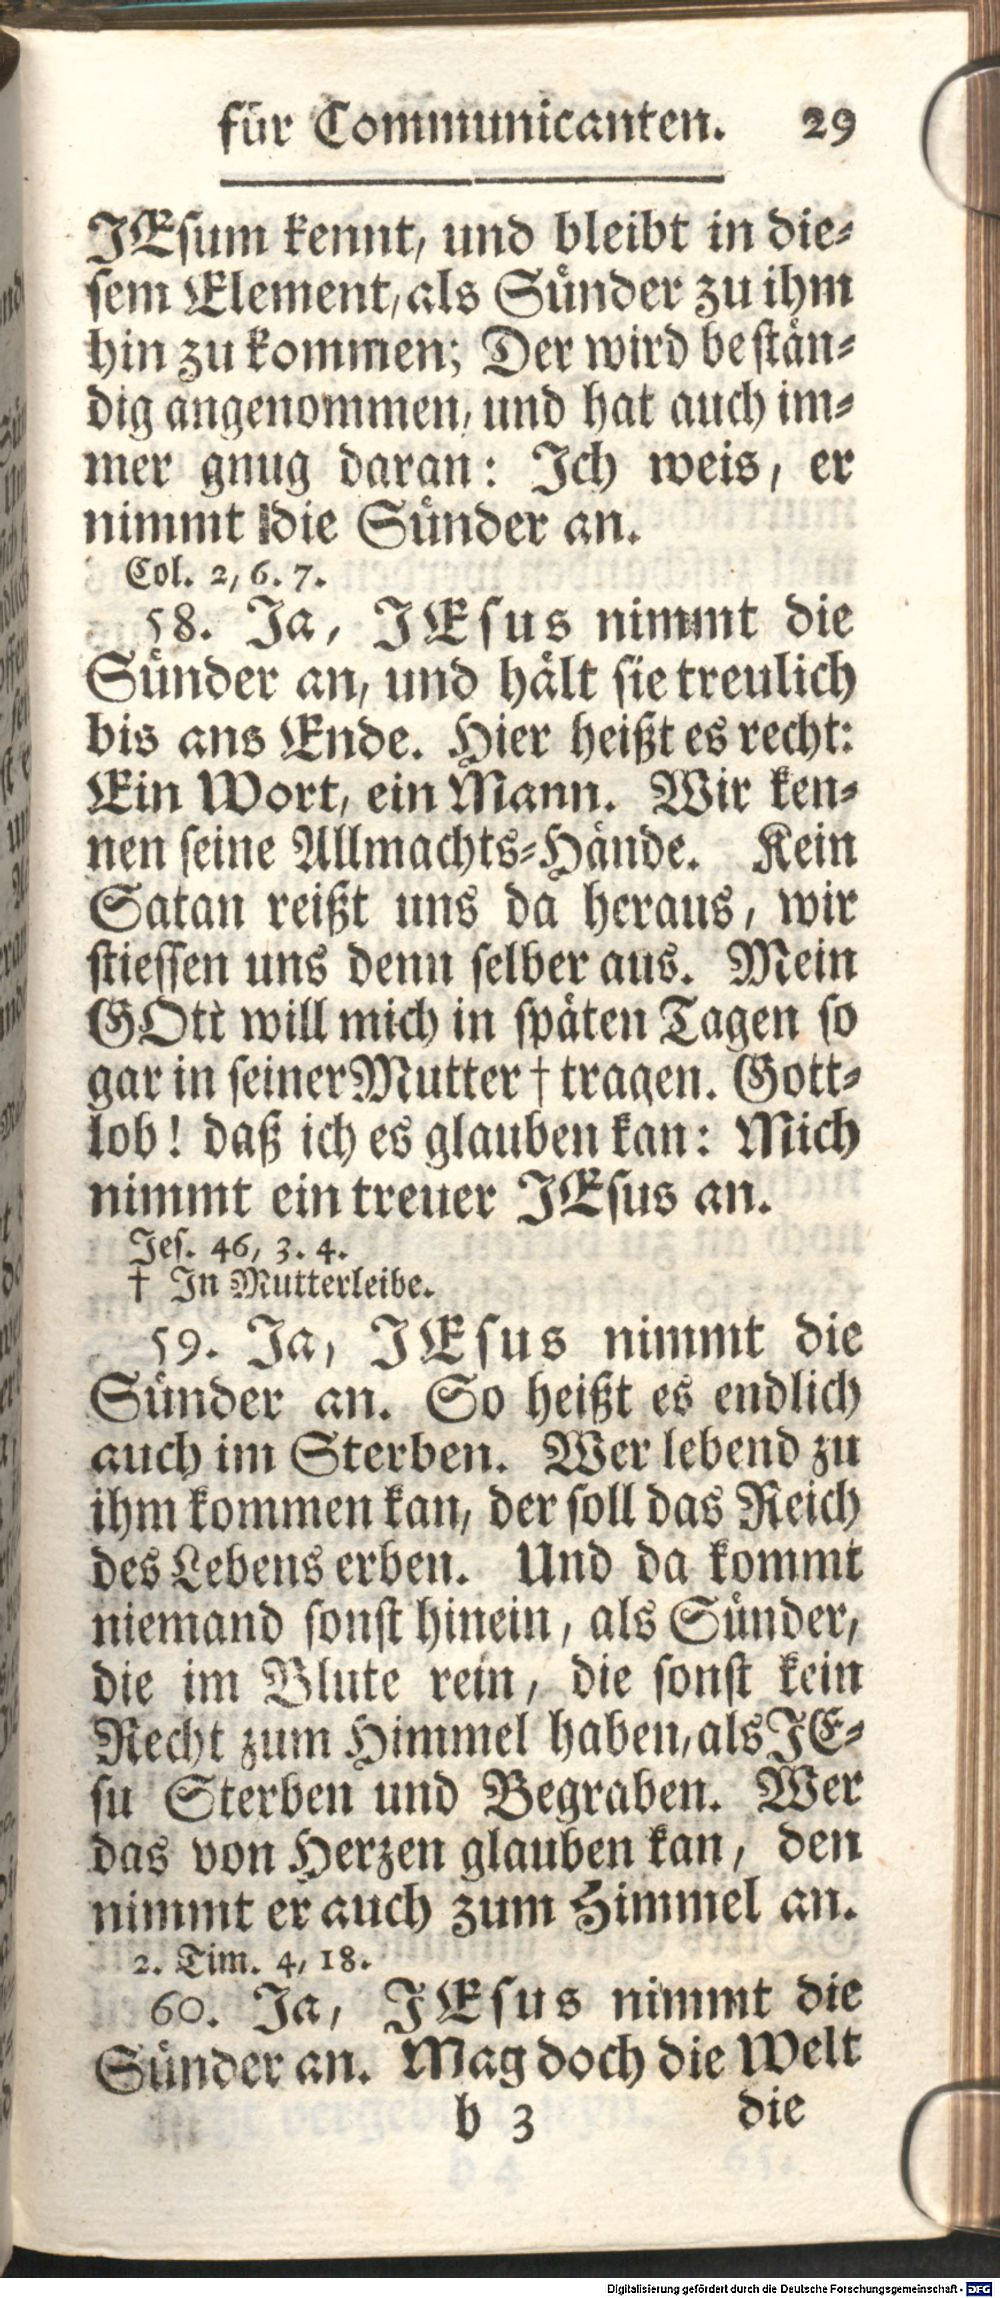 für Communicanten. 29
JEsum kennt, und bleibt in die-
sem Element, als Sünder zu ihm
hin zu kommen; Der wird bestän-
dig angenommen, und hat auch im-
mer gnug daran: Ich weis, er
nimmt die Sünder an.
Col. 2, 6. 7.
58. Ja, JEsus nimmt die
Sünder an, und hält sie treulich
bis ans Ende. Hier heißt es recht:
Ein Wort, ein Mann. Wir ken-
nen seine Allmachts-Hände. Kein
Satan reißt uns da heraus, wir
stiessen uns denn selber aus. Mein
GOtt will mich in späten Tagen so
gar in seiner Mutter † tragen. Gott-
lob! daß ich es glauben kan: Mich
nimmt ein treuer JEsus an.
Jes. 46, 3. 4.
† In Mutterleibe.
59. Ja, JEsus nimmt die
Sünder an. So heißt es endlich
auch im Sterben. Wer lebend zu
ihm kommen kan, der soll das Reich
des Lebens erben. Und da kommt
niemand sonst hinein, als Sünder,
die im Blute rein, die sonst kein
Recht zum Himmel haben, als JE-
su Sterben und Begraben. Wer
das von Herzen glauben kan, den
nimmt er auch zum Himmel an.
2. Tim. 4, 18.
60. Ja, JEsus nimmt die
Sünder an. Mag doch die Welt
b 3 die
Digitalisierung gefördert durch die Deutsche Forschungsgemeinschaft - DFG